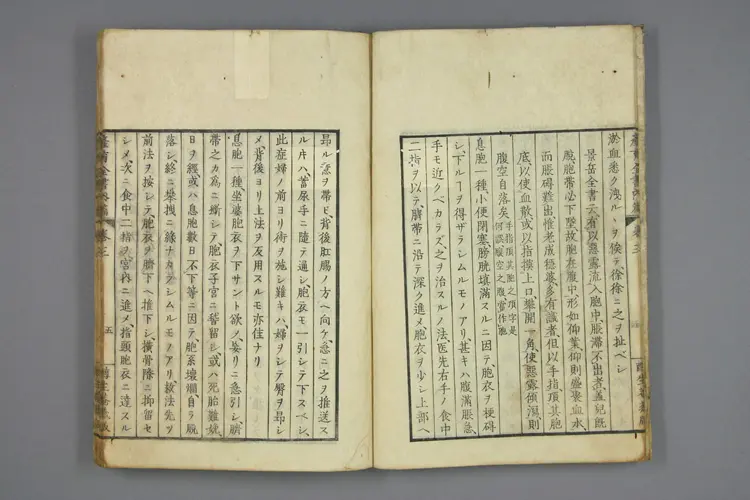 淤血悉ク洩ルヽヲ俟テ徐徐ニ之ヲ扯ベシ
景岳全書云有以惡露流入胞中脹滯不出者蓋兒既
脫胞帶必下墜故胞在腹中形如仰葉仰則盛聚血水
而脹碍難出惟老成穩婆多有識者但以手指頂其胞
底以使血散或以指摸上口攀開一角使惡露傾瀉則
腹空自落矣
手指頂其胞之頂字是
息胞一種小便閉塞膀胱塡滿スルニ因テ胞衣ヲ梗碍
シ下ルヿヲ得ザラシムルモノアリ甚キハ腹滿脹急
手モ近クベカラズ之ヲ治スルノ法医先右手ノ食中
二指ヲ以テ臍帶ニ沿テ深ク進メ胞衣ヲ少シ上部ヘ
昻ル意ヲ帶ビ背後肛腸ノ方ヘ向ケ急ニ之ヲ推送ス
ル片ハ蓄尿手ニ隨テ通シ胞衣モ一引シテ下スベシ
此症婦ノ前ヨリ術ヲ施シ難キハ婦ヲシテ臀ヲ昻シ
メ背後ヨリ上法ヲ反用スルモ亦佳ナリ
息胞一種坐婆胞衣ヲ下サント欲メ妄リニ急引シ臍
帶之カ爲ニ斷シテ胞衣子宮ニ稽留シ或ハ死胎難娩
日ヲ經或ハ息胞數日不下等ニ因テ胞系壞爛自ラ脫
落シ終ニ牽拽ニ緣ナカラシムルモノアリ救法先ヅ
前法ヲ按シテ臍下ヘ推下シ橫骨際ニ抑留セ
シメ次ニ食中二指ヲ宮內ニ進メ指頭胞衣ニ達スル
五